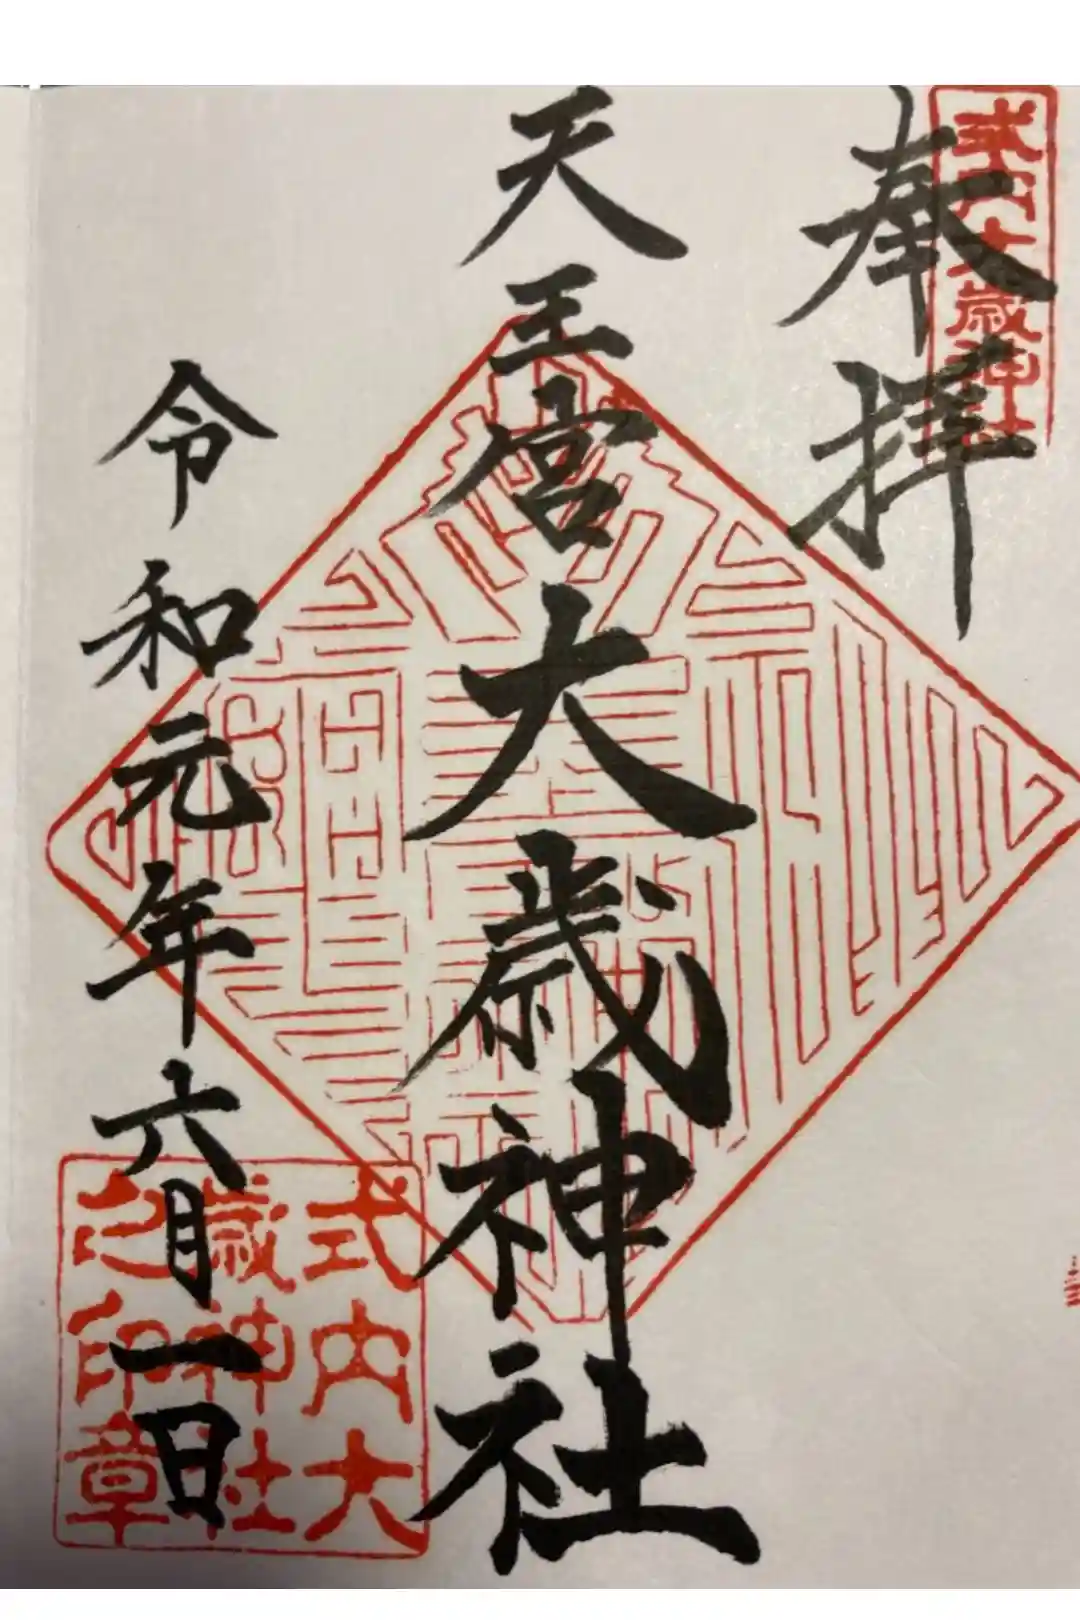 式内大歳神社
奉拝
天王宮大歳神社
令和元年六月一日
式内大
歳神社
之印章